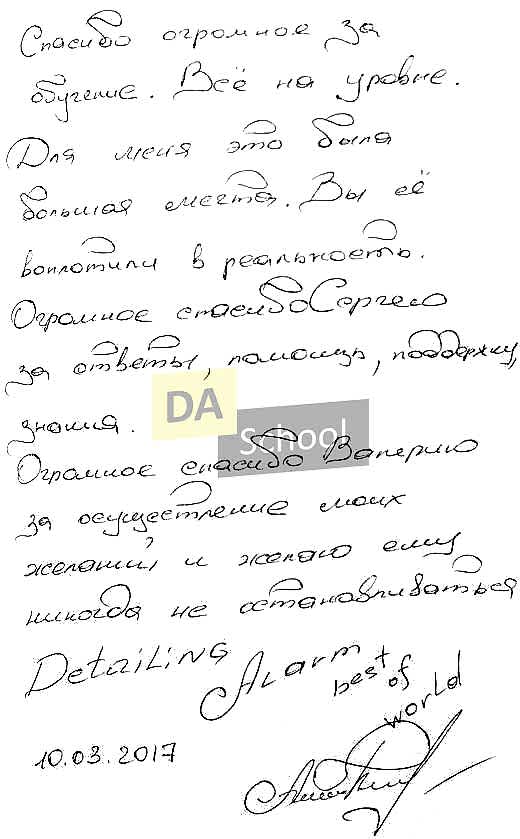 Спасибо огромное за
обучение. Всё на уровне.
Для меня это была
большая мечта. Вы её
воплотили в реальность.
Огромное спасибо Сергею
за ответы, помощь, поддержку,
знания.
DA
School
Огромное спасибо Валерию
за осуществление моих
желаний, и желаю ему
никогда не останавливаться
Detailing Alarm
best of
world
10.03.2017